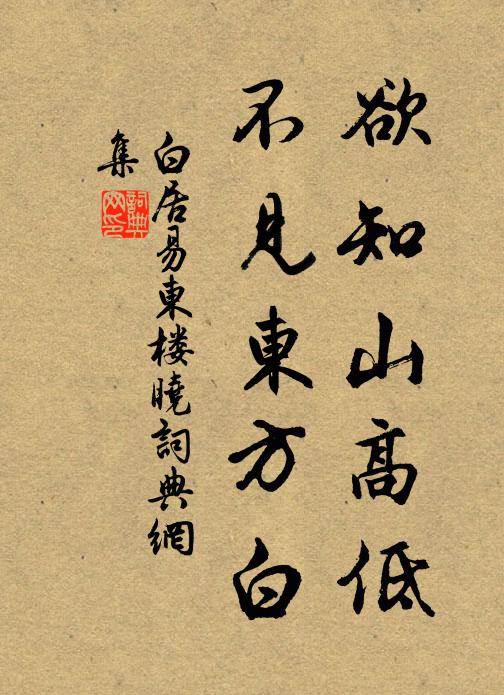 欲知山高低
不見東方白
白居易東楼曉詞典網
集
詞典网印